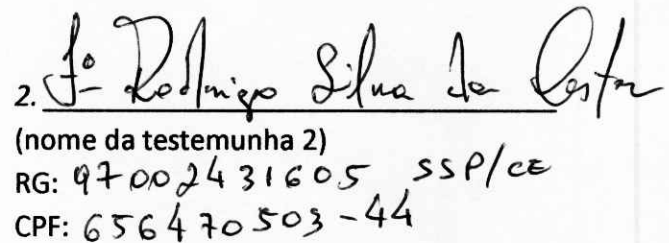 2. Fº Rodrigo Silva da Costa
(nome da testemunha 2)
RG: 97002431605 SSP/CE
CPF: 656470503-44